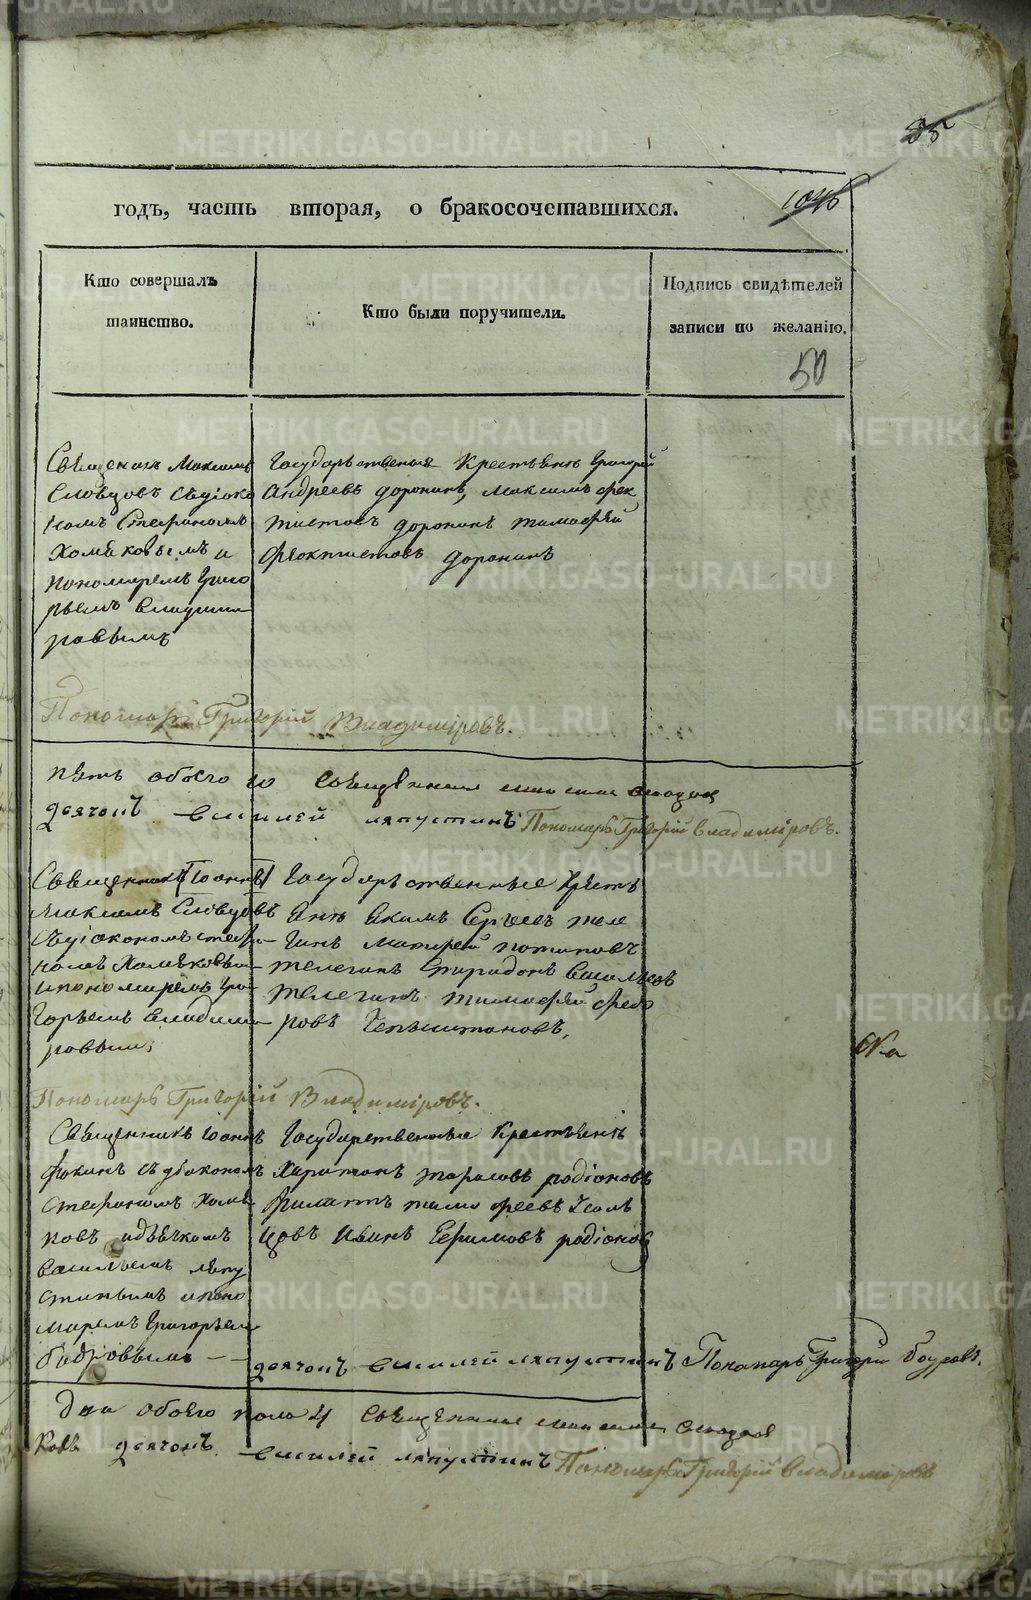 85
1046
годъ, часть вторая, о бракосочетавшихся.
Кто совершалъ таинство.
Кто были поручители.
Подпись свидѣтелей записи по желанію.
50
Священикъ Максимъ
Словцовъ съдіако
номъ Стефаномъ
Хомяковымъ и
пономаремъ Григо
рьемъ Владими
ровымъ
Государственыя Крестьяне Григорей
Андреевъ доронинъ, Максимъ Фек
тистовъ доронинъ тимофей
Феоктистовъ доронинъ
Пономарь Григорій Владиміровъ.
пять обоего 10 Священникъ Максимъ Словцовъ
дьячокъ Василей ляпустинъ Пономарь Григорій Владиміровъ.
Священникъ Іоаннъ
Максимъ Словцовъ
съдіакономъ стефа
номъ Хомяковы
ипономаремъ Гри
горьемъ Владими
ровымъ
Государственные Кресть
яне Екимъ Сергеевъ теле
гинъ Матфей потаповъ
телегинъ Спиридонъ Васильевъ
телегинъ тимофей Федо
ровъ
Пономарь Григорій Владиміровъ.
Священникъ Іоаннъ
съ дьакономъ
Стефаномъ Хомя
ковъ идьячкомъ
васильемъ ляпу
стинымъ ипоно
маремъ Григорьем
Государственные Крестьяне
Харитонъ тарасовъ родіоновъ
Филатъ тимофеевъ Усоль
цовъ Иванъ Ефимовъ родіоновъ
дьячокъ Василей ляпустинъ Пономарь Григорій
Два обоего пола 4 Священникъ Максимъ Словцовъ
дьячокъ Василей ляпустинъ Пономарь Григорій Владиміровъ
METRIKI.GASO-URAL.RU